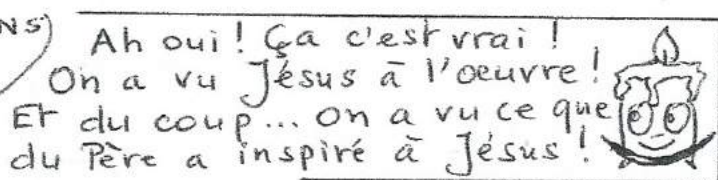 NS
Ah oui ! Ça c'est vrai !
On a vu Jésus à l'oeuvre !
Et du coup... on a vu ce que
du Père a inspiré à Jésus !